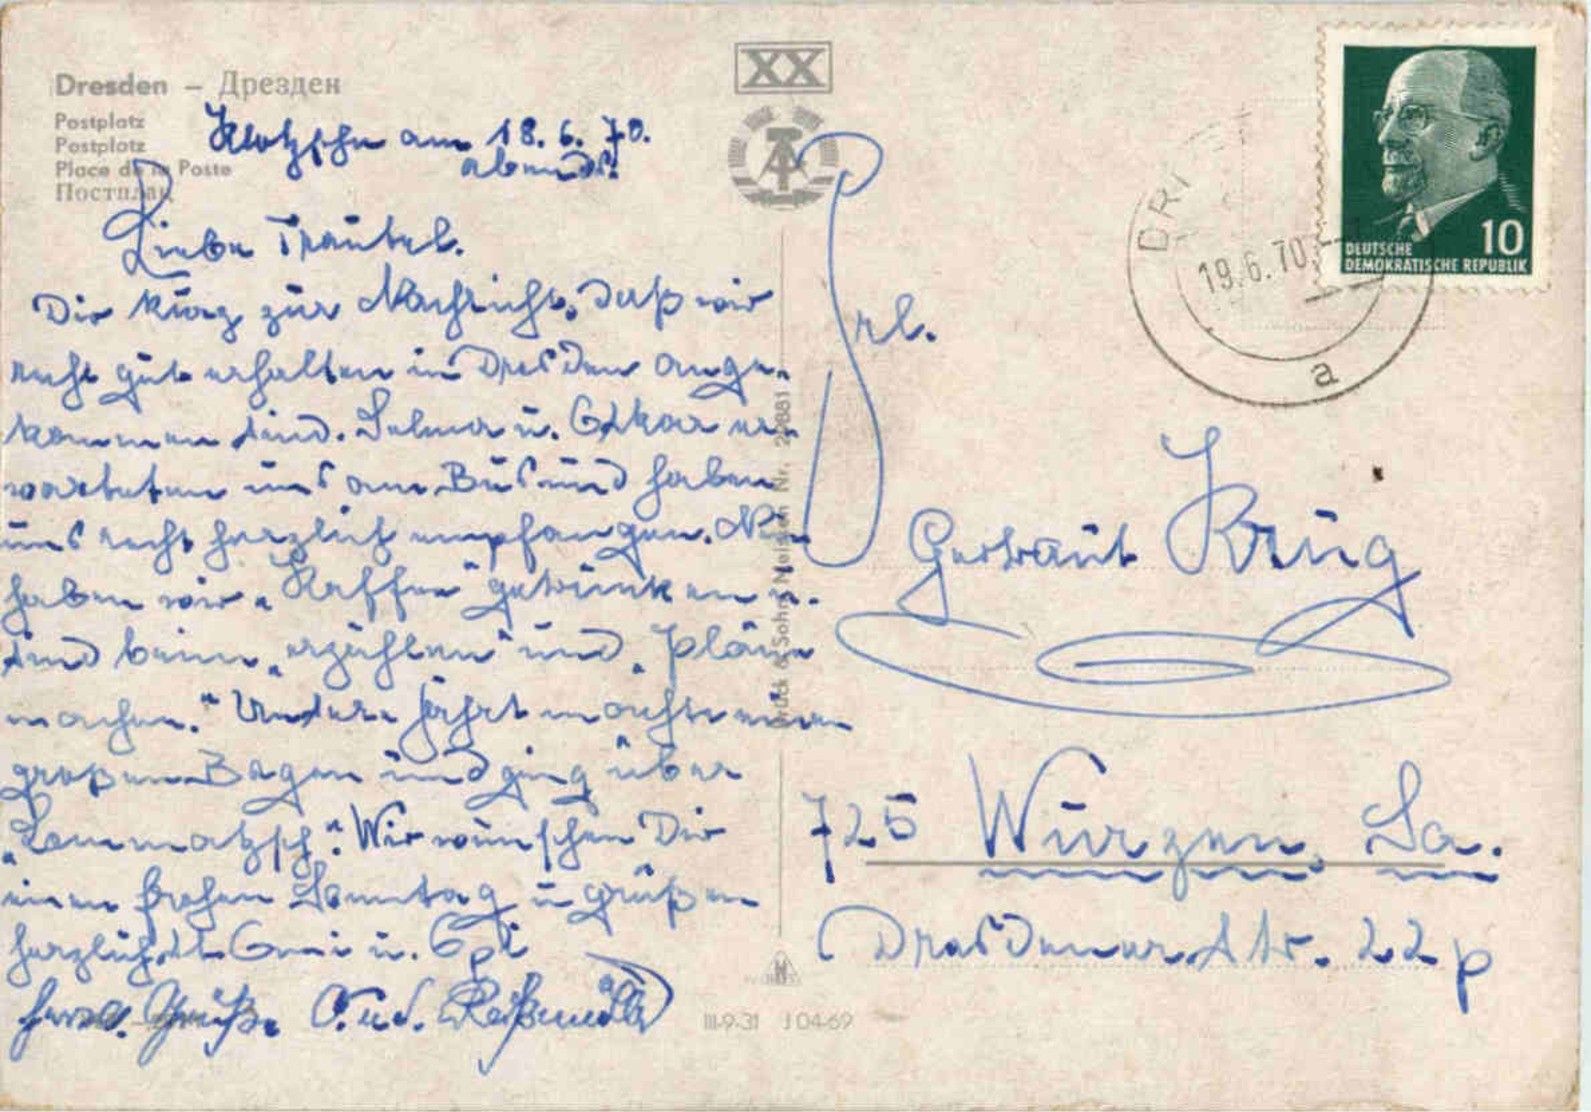 Dresden – Дрезден
Postplatz
Postplatz
Place de la Poste
Постплац
XX
Klotzsche am 18. 6. 70.
abends!
Liebe Trautel.
Dir kurz zur Nachricht, daß wir
recht gut erhalten in Dresden ange-
kommen sind. Selma u. Oskar er-
warteten uns am Bus und haben
uns recht herzlich empfangen. Nun
haben wir „Kaffee" getrunken u.
sind beim „erzählen" und „Pläne
machen." Unsere Fahrt machte einen
großen Bogen und ging über
„Lommatzsch". Wir wünschen Dir
einen frohen Sonntag u grüßen
herzlichst Omi u. Opi
herzl. Grüße O. u. S.
Frl.
Gertraut Krug
725 Wurzen, Sa.
Dresdener Str. 22p
10
DEUTSCHE
DEMOKRATISCHE REPUBLIK
19.6.70
a
III-9-31 J 04-69